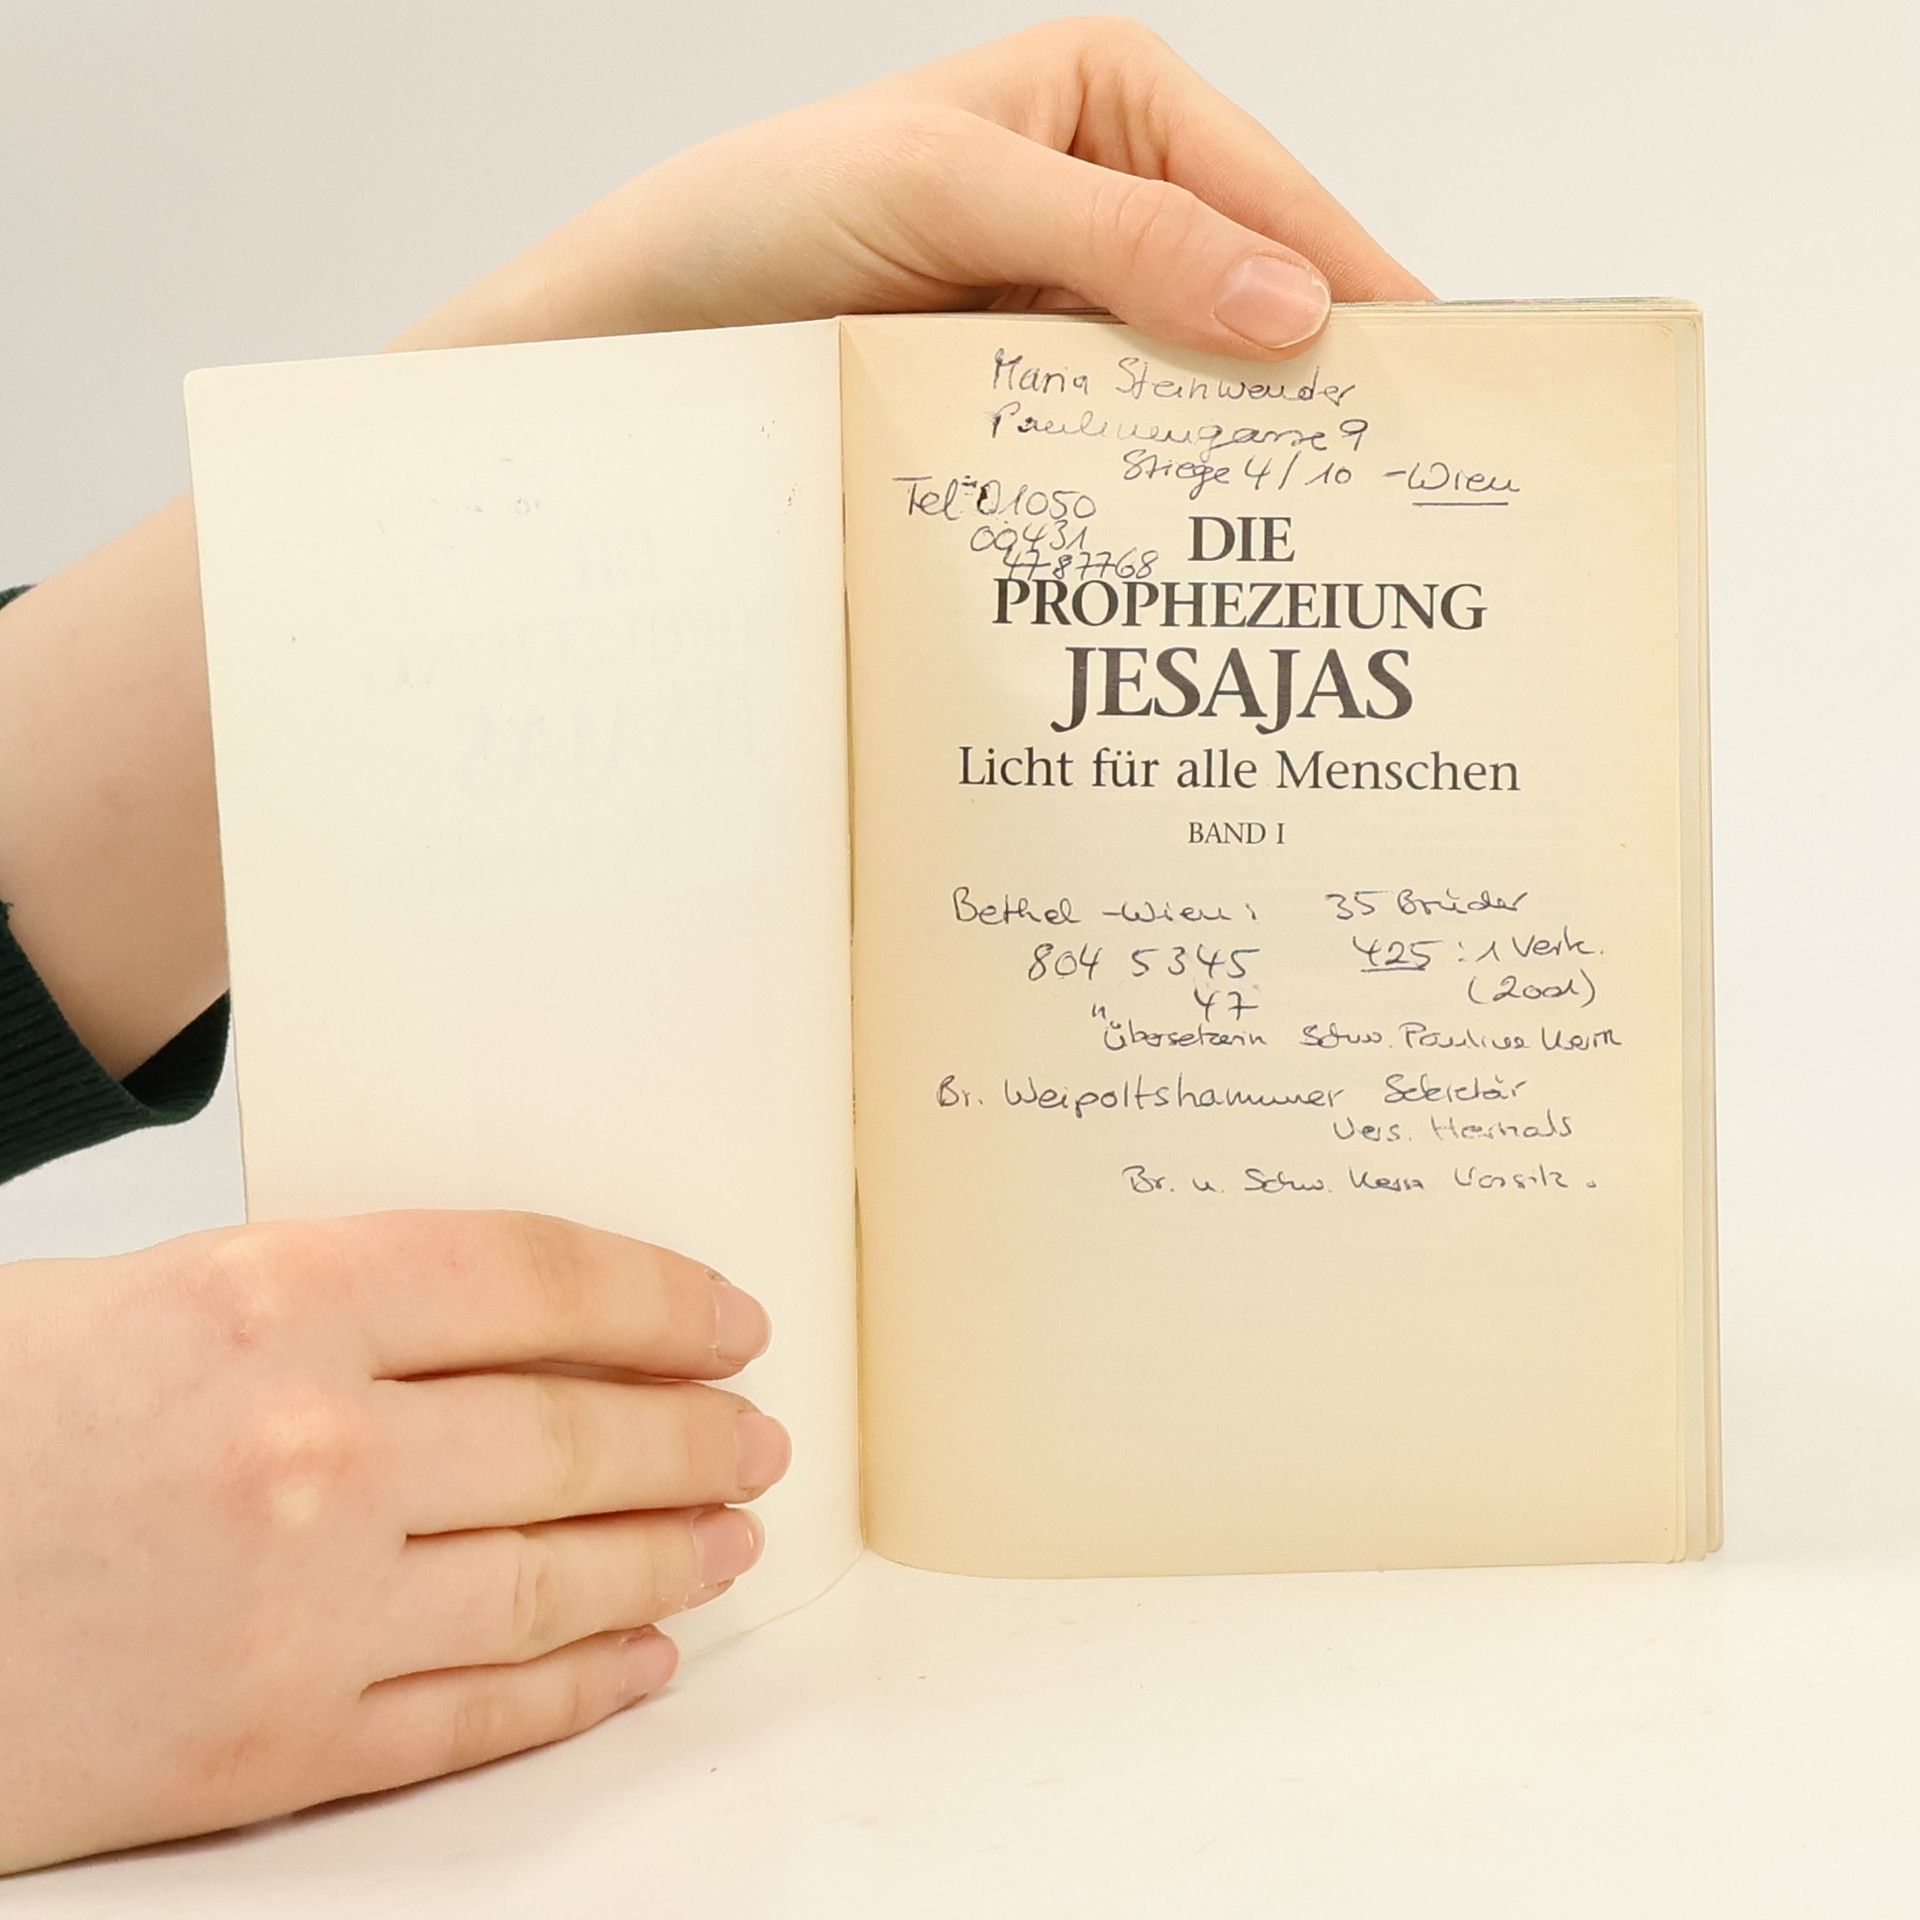 Maria Steinwender
Paulinengasse 9
Stiege 4/10 - Wien
Tel. 01050
00431
4787768
DIE
PROPHEZEIUNG
JESAJAS
Licht für alle Menschen
BAND I
Bethel - Wien: 35 Brüder
804 5345 425 : 1 Verk.
" 47 (2001)
Übersetzerin Schw. Pauline Kern
Br. Weipoltshammer Sekretär
Vers. Hernals
Br. u. Schw. Kern